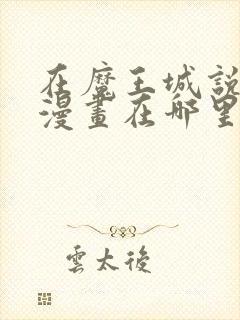 在魔王城說
漫畫在哪里
雲太後